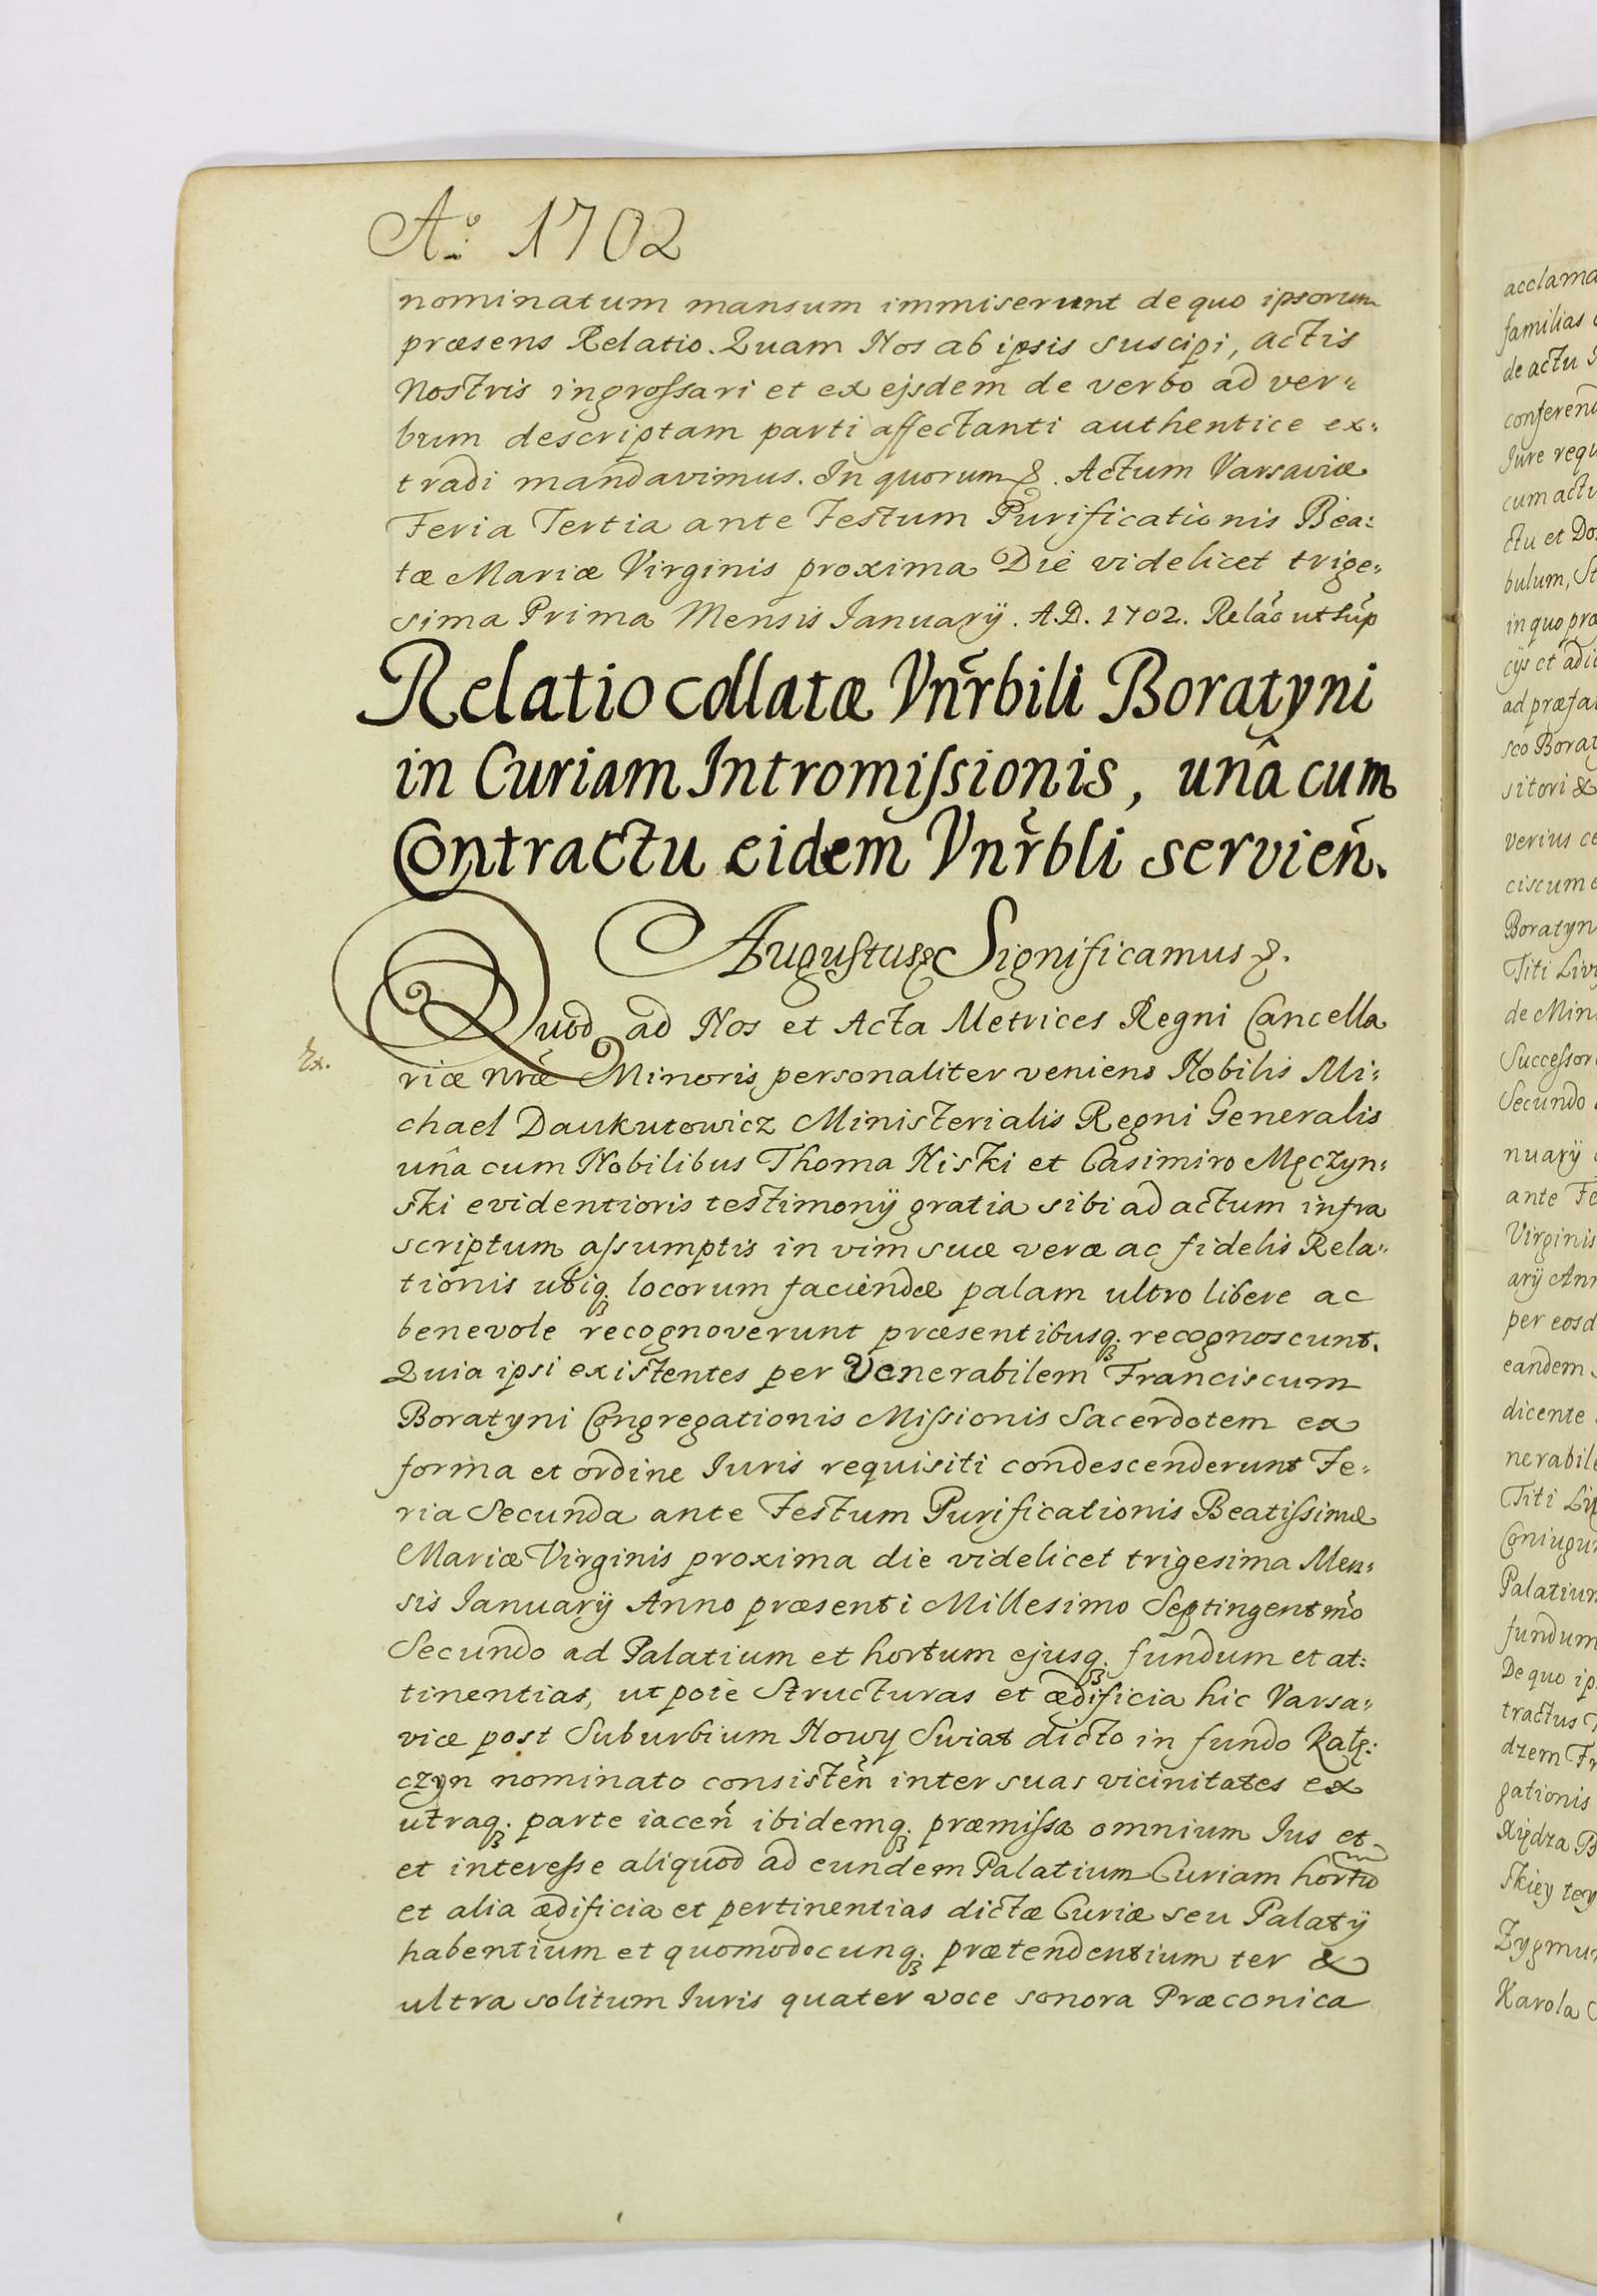 Aº 1702
nominatum mansum immiserunt de quo ipsorum
præsens Relatio. Quam Nos ab ipsis suscipi, actis
Nostris ingrossari et ex ejsdem de verbo ad ver=
bum descriptam parti affectanti authentice ex=
tradi mandavimus. In quorum &. Actum Varsaviæ
Feria Tertia ante Festum Purificationis Bea=
tæ Mariæ Virginis proxima Die videlicet trige=
sima Prima Mensis Ianuarÿ. A.D. 1702. Relão ut sup
Relatio collatæ Vnrbili Boratyni
in Curiam Intromissionis, unâ cum
Contractu eidem Vnrbli servien.
Augustus & Significamus &.
Quod ad Nos et Acta Metrices Regni Cancella
Ex.
riæ nræ Minoris personaliter veniens Nobilis Mi=
chael Daukutowicz Ministerialis Regni Generalis
unâ cum Nobilibus Thoma Niski et Casimiro Męczyn=
ski evidentioris testimonÿ gratia sibi ad actum infra
scriptum assumptis in vim suæ veræ ac fidelis Rela=
tionis ubiq. locorum faciendæ palam ultro libere ac
benevole recognoverunt præsentibusq. recognoscunt.
Quia ipsi existentes per Venerabilem Franciscum
Boratyni Congregationis Missionis Sacerdotem ex
forma et ordine Iuris requisiti condescenderunt Fe=
ria Secunda ante Festum Purificationis Beatissimæ
Mariæ Virginis proxima die videlicet trigesima Men=
sis Ianuarÿ Anno præsenti Millesimo Septingentmo
Secundo ad Palatium et hortum ejusq. fundum et at=
tinentias, ut pote Structuras et ædificia hic Varsa=
viæ post Suburbium Nowy Swiat dicto in fundo Kałę=
czyn nominato consisten inter suas vicinitates ex
utraq. parte iacen ibidemq. præmissa omnium Ius et
et interesse aliquod ad eundem Palatium Curiam hortu
et alia ædificia et pertinentias dictæ Curiæ seu Palatÿ
habentium et quomodocunq. prætendentium ter &
ultra solitum Iuris quater voce sonora Præconica
acclama
familias
de actu
conferend
Iure requ
cum actu
ctu et Do
bulum, St
in quo præ
cÿs et adi
ad præfa
sco Borat
sitori &
verius ce
ciscum
Boratyn
Titi Livi
de Min
Successor
Secundo
nuarÿ
ante Fe
Virginis
arÿ Ann
per eosd
eandem
dicente
nerabile
Titi Li
Coniugu
Palatium
fundum
De quo ip
tractus
dzem Fr
gationis
Xiędza B
skiey tey
Zygmun
Karola